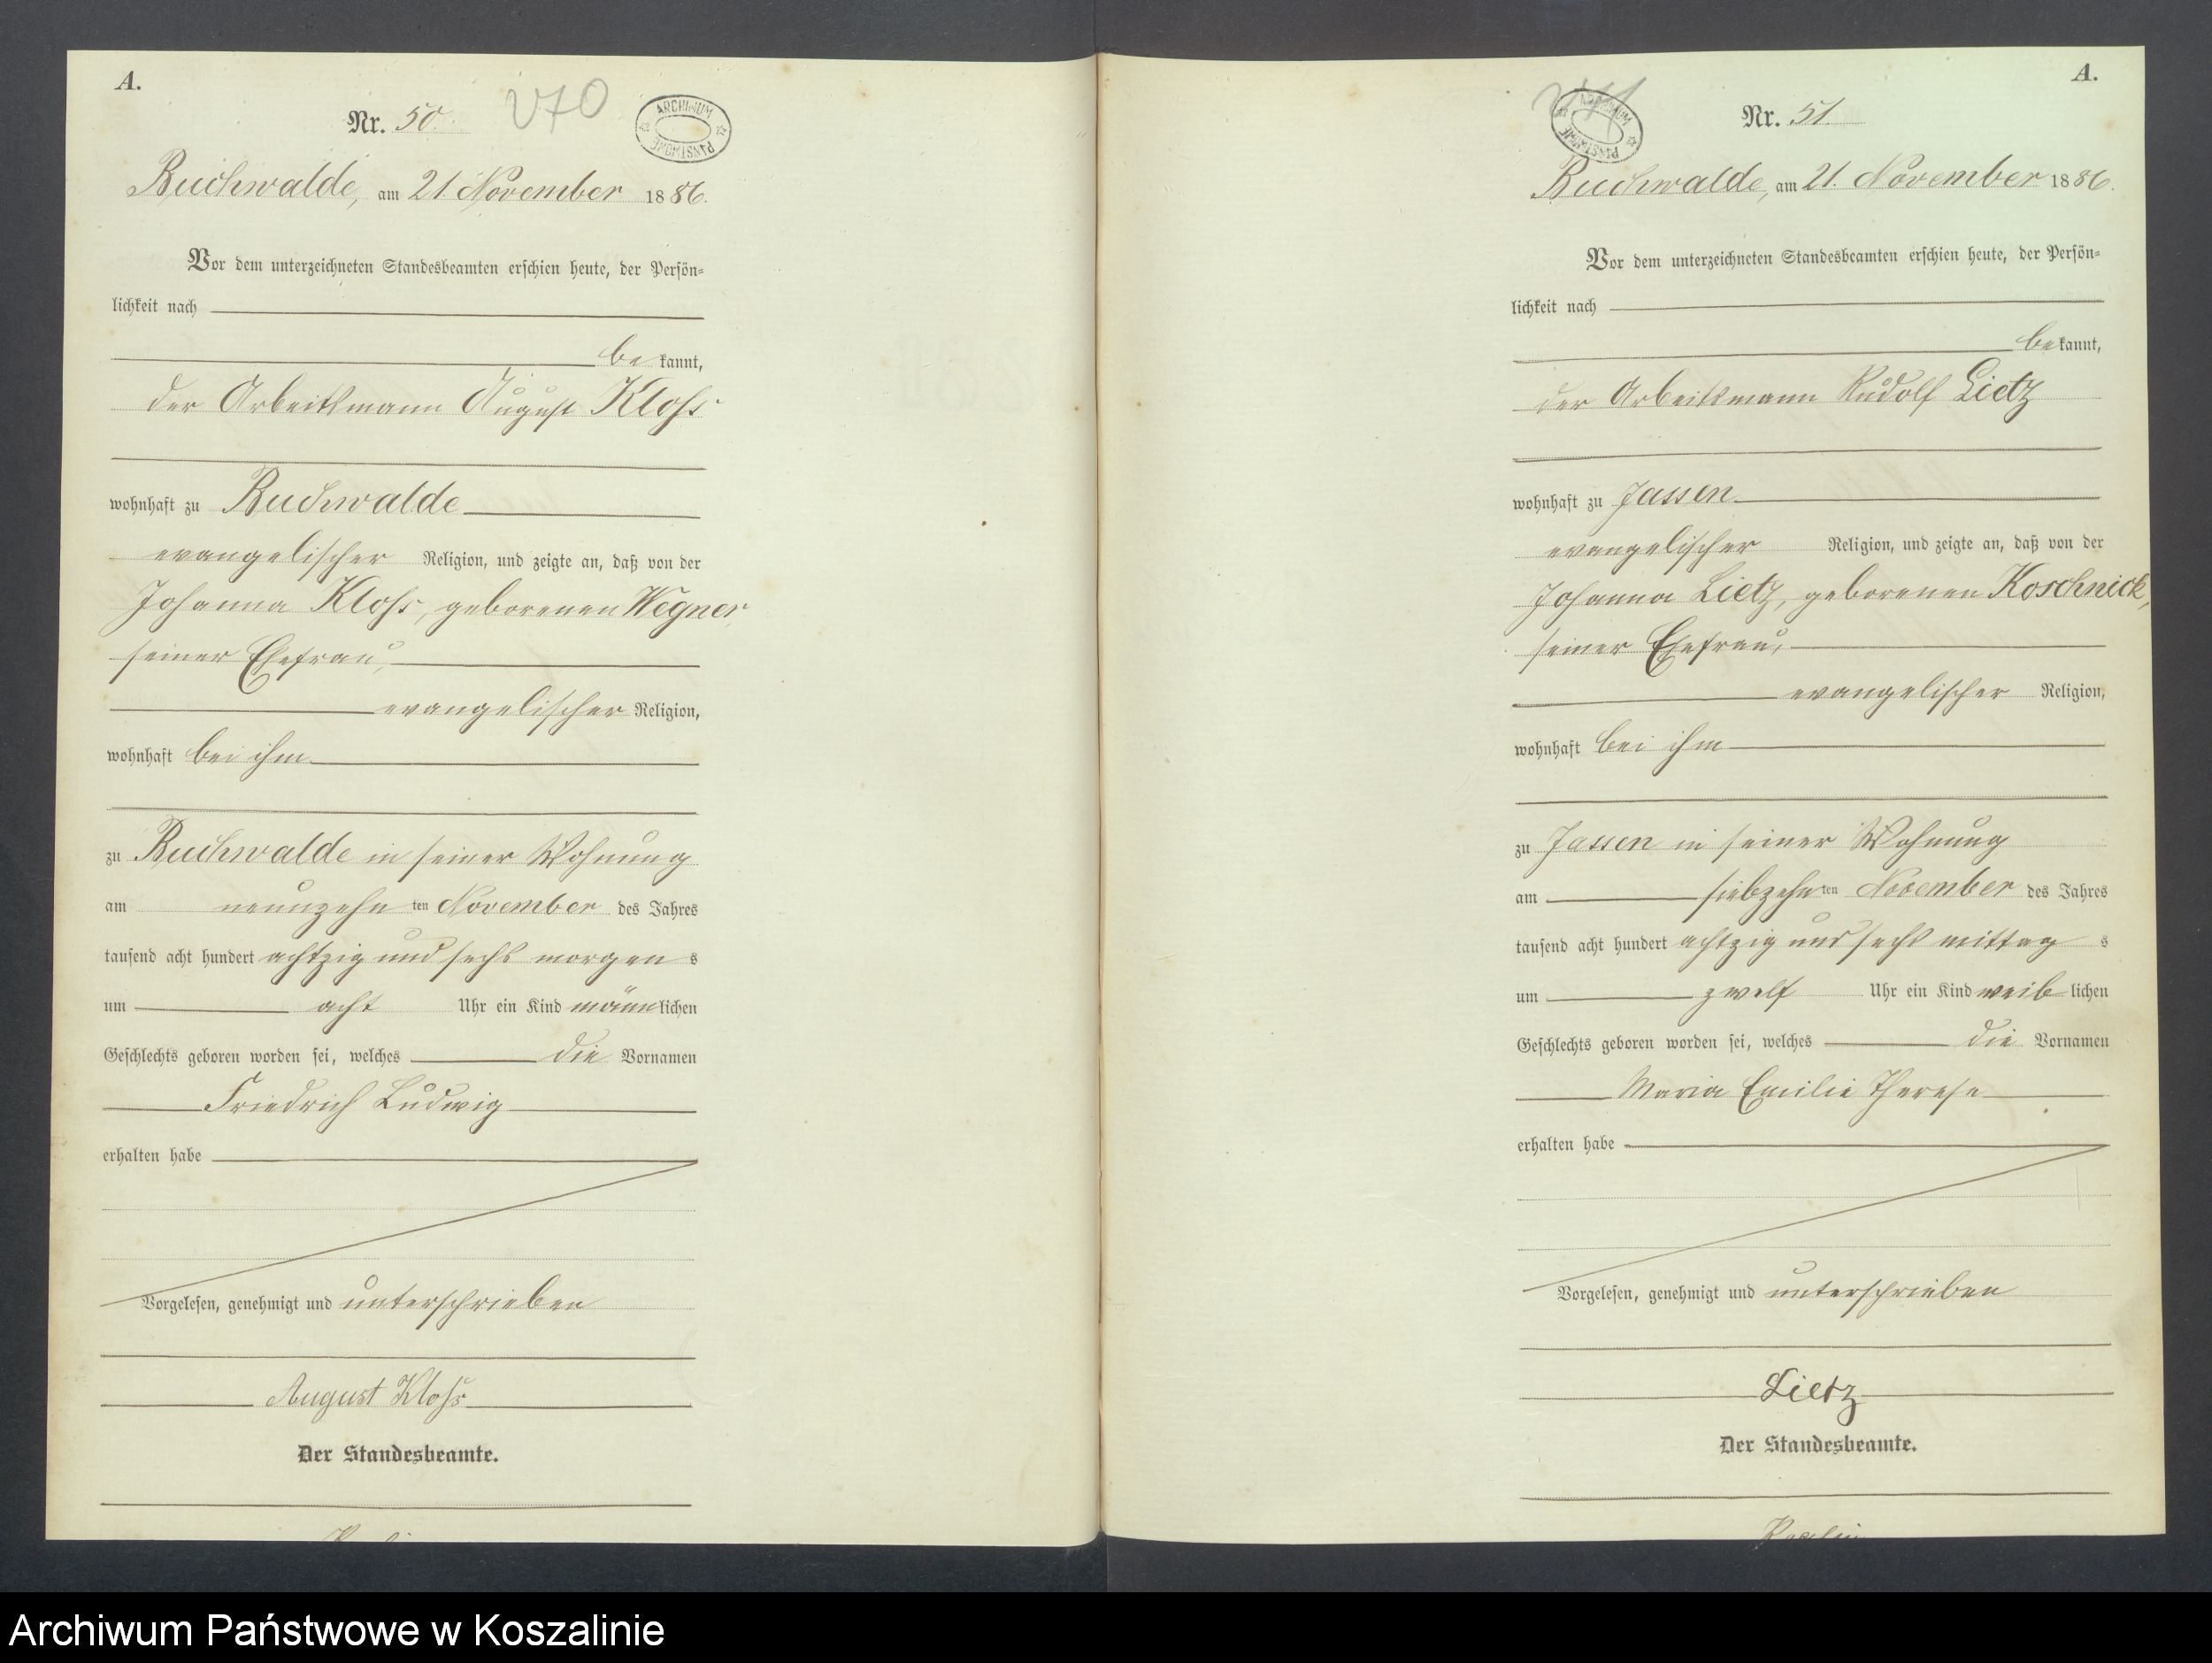 A.
Nr. 50.
270
ARCHIWUM PAŃSTWOWE
Buchwalde, am 21. November 1886.
Vor dem unterzeichneten Standesbeamten erschien heute, der Persön-
lichkeit nach
be kannt,
der Arbeitsmann August Kloss
wohnhaft zu Buchwalde
evangelischer Religion, und zeigte an, daß von der
Johanna Kloss, geborenen Wegner,
seiner Ehefrau,
evangelischer Religion,
wohnhaft bei ihm
zu Buchwalde in seiner Wohnung
am neunzehn ten November des Jahres
tausend acht hundert achtzig und sechs morgen s
um acht Uhr ein Kind männlichen
Geschlechts geboren worden sei, welches die Vornamen
Friedrich Ludwig
erhalten habe
Vorgelesen, genehmigt und unterschrieben
August Kloss
Der Standesbeamte.
A.
Nr. 51.
ARCHIWUM PAŃSTWOWE
Buchwalde, am 21. November 1886.
Vor dem unterzeichneten Standesbeamten erschien heute, der Persön-
lichkeit nach
be kannt,
der Arbeitsmann Rudolf Lietz
wohnhaft zu Jassen
evangelischer Religion, und zeigte an, daß von der
Johanna Lietz, geborenen Koschnick,
seiner Ehefrau,
evangelischer Religion,
wohnhaft bei ihm
zu Jassen in seiner Wohnung
am siebzehn ten November des Jahres
tausend acht hundert achtzig und sechs mittag s
um zwölf Uhr ein Kind weib lichen
Geschlechts geboren worden sei, welches die Vornamen
Maria Emilie Therese
erhalten habe
Vorgelesen, genehmigt und unterschrieben
Lietz
Der Standesbeamte.
Archiwum Państwowe w Koszalinie